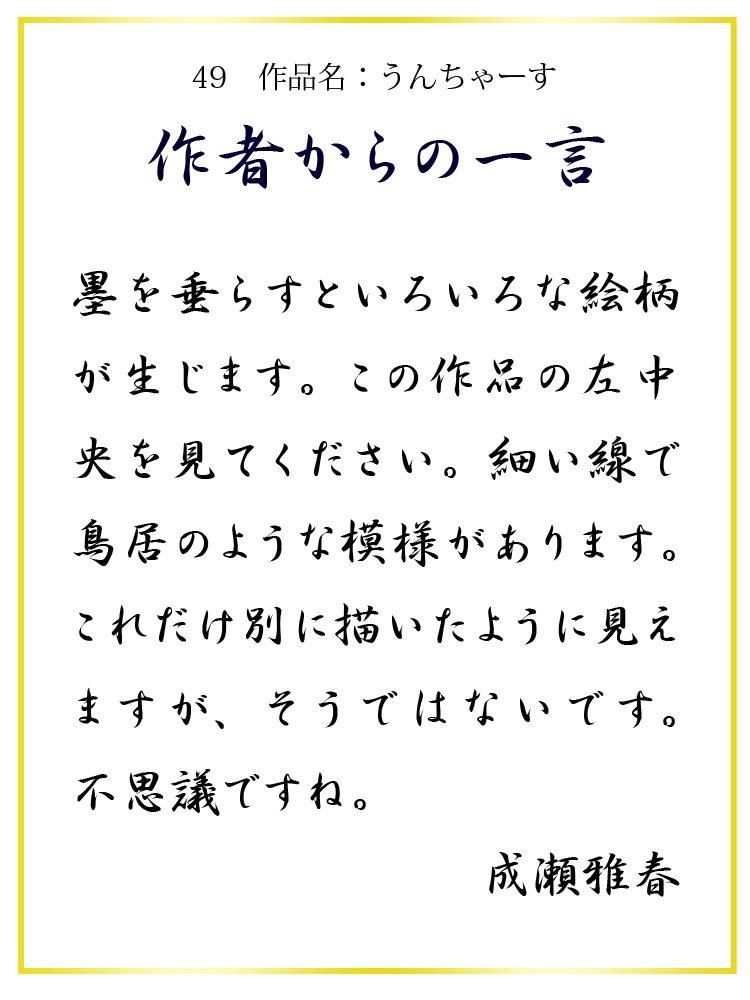 49　作品名：うんちゃーす
作者からの一言
墨を垂らすといろいろな絵柄
が生じます。この作品の左中
央を見てください。細い線で
鳥居のような模様があります。
これだけ別に描いたように見え
ますが、そうではないです。
不思議ですね。
成瀬雅春